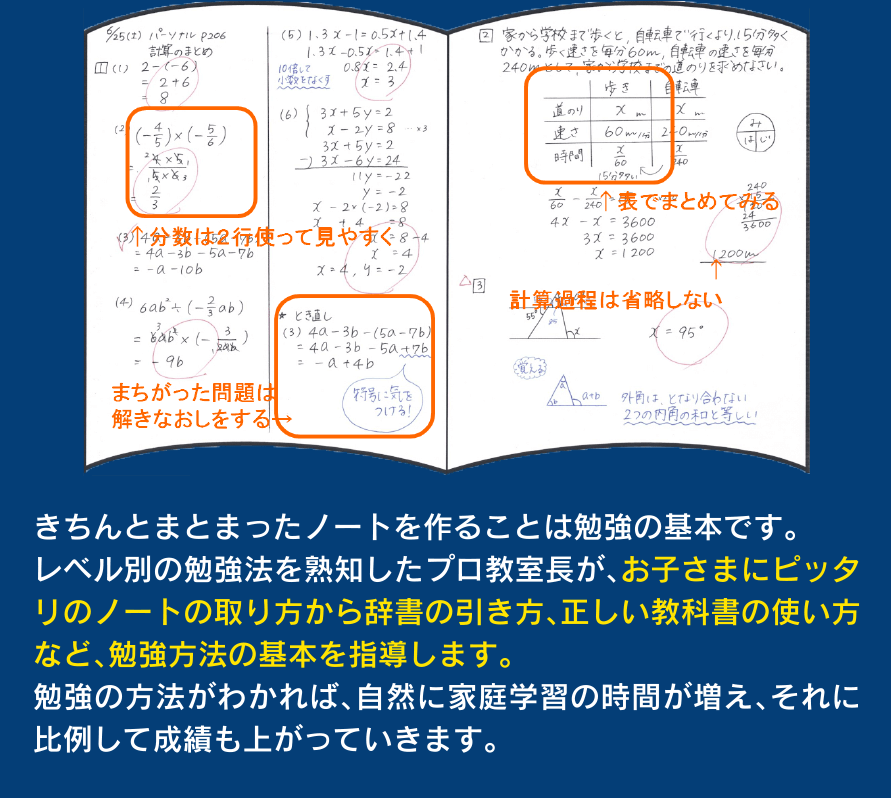 6/25(土) パーソナル P206
計算のまとめ
1 (1) 2-(-6)
= 2+6
= 8
(2) (-4/5)×(-5/6)
=
= 2/3
↑分数は2行使って見やすく
(3)
= 4a-3b-5a-7b
= -a-10b
(4) 6ab²÷(-2/3 ab)
= 6ab²×(-3/2ab)
= -9b
まちがった問題は
解きなおしをする→
(5) 1.3x-1=0.5x+1.4
1.3x-0.5x=1.4+1
10倍して
小数をなくす
0.8x=2.4
x=3
(6) { 3x+5y=2
x-2y=8 …×3
3x+5y=2
-) 3x-6y=24
11y=-22
y=-2
x-2×(-2)=8
x+4=8
x=8-4
x=4
x=4, y=-2
★ とき直し
(3) 4a-3b-(5a-7b)
= 4a-3b-5a+7b
= -a+4b
符号に気を
つける!
2 家から学校まで歩くと、自転車で行くより、15分多く
かかる。歩く速さを毎分60m, 自転車の速さを毎分
240mとして、家から学校までの道のりを求めなさい。
歩き 自転車
道のり x m x m
速さ 60m/分 240m/分
時間 x/60 x/240
15分多い
み
は じ
x/60 - x/240
↑表でまとめてみる
4x-x=3600
3x=3600
x=1200
240
24
3600
1200m
↑
計算過程は省略しない
3
55°
x
x=95°
覚える
a
b
a+b
外角は、となり合わない
2つの内角の和と等しい
きちんとまとまったノートを作ることは勉強の基本です。
レベル別の勉強法を熟知したプロ教室長が、お子さまにピッタ
リのノートの取り方から辞書の引き方、正しい教科書の使い方
など、勉強方法の基本を指導します。
勉強の方法がわかれば、自然に家庭学習の時間が増え、それに
比例して成績も上がっていきます。